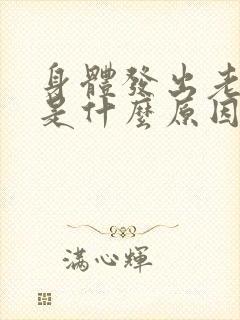 身體發出老
是什麼原因
滿心輝